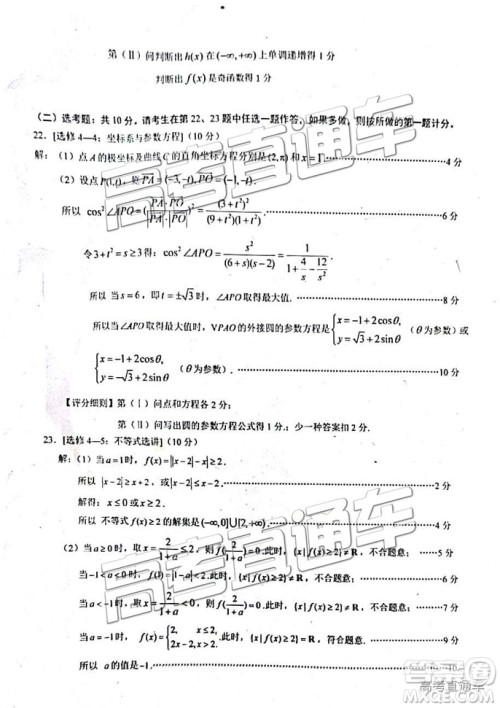 第（Ⅱ）问判断出h(x)在(-∞,+∞)上单调递增得1分
判断出f(x)是奇函数得1分
（二）选考题：共10分，请考生在第22、23题中任选一题作答，如果多做，则按所做的第一题计分。
22. [选修4—4：坐标系与参数方程]（10分）
解：（1）点A的极坐标及曲线C的直角坐标方程分别是(2,π)和x=1. 4分
（2）设点P(1,t)，则PA=(-3,-t),PO=(-1,-t).
所以 cos²∠APO=(PA·PO/|PA|·|PO|)²=(3+t²)²/(9+t²)(1+t²) 6分
令3+t²=s≥3得：cos²∠APO=s²/(6+s)(s-2)=1/(1+4/s-12/s²)
所以 当s=6，即t=±√3时，cos²∠APO取得最大值. 8分
所以 当∠APO取得最大值时，VPAO的外接圆的参数方程是
{x=-1+2cosθ, y=√3+2sinθ 或{x=-1+2cosθ, y=-√3+2sinθ （θ为参数）. 10分
【评分细则】第（Ⅰ）问点和方程各2分；
第（Ⅱ）问写出圆的参数方程公式得1分；少一种答案扣2分.
23. [选修4—5：不等式选讲]（10分）
解：（1）当a=1时，f(x)=||x-2|-x|.
所以 |x-2|≥x+2，或|x-2|≤x-2
解得：x≤0或x≥2.
所以 不等式f(x)≥2的解集是(-∞,0]∪[2,+∞). 4分
（2）当a≥0时，取x=2/(1+a)≤2，则f(2/(1+a))=0.此时，{x|f(x)≥2}≠R，不合题意； 5分
当-1<a<0时，f(0)=||-a|<2.此时，{x|f(x)≥2}≠R，不合题意； 6分
当a<-1时，取x=2/(1+a)<2，则f(2/(1+a))=0.此时，{x|f(x)≥2}≠R，不合题意； 7分
当a=-1时，f(x)={2, x≤2, 2x-2, x>2.此时，{x|f(x)≥2}=R，符合题意. 9分
所以 a的值是-1. 10
高考直通车
高考直通车
高考直通车